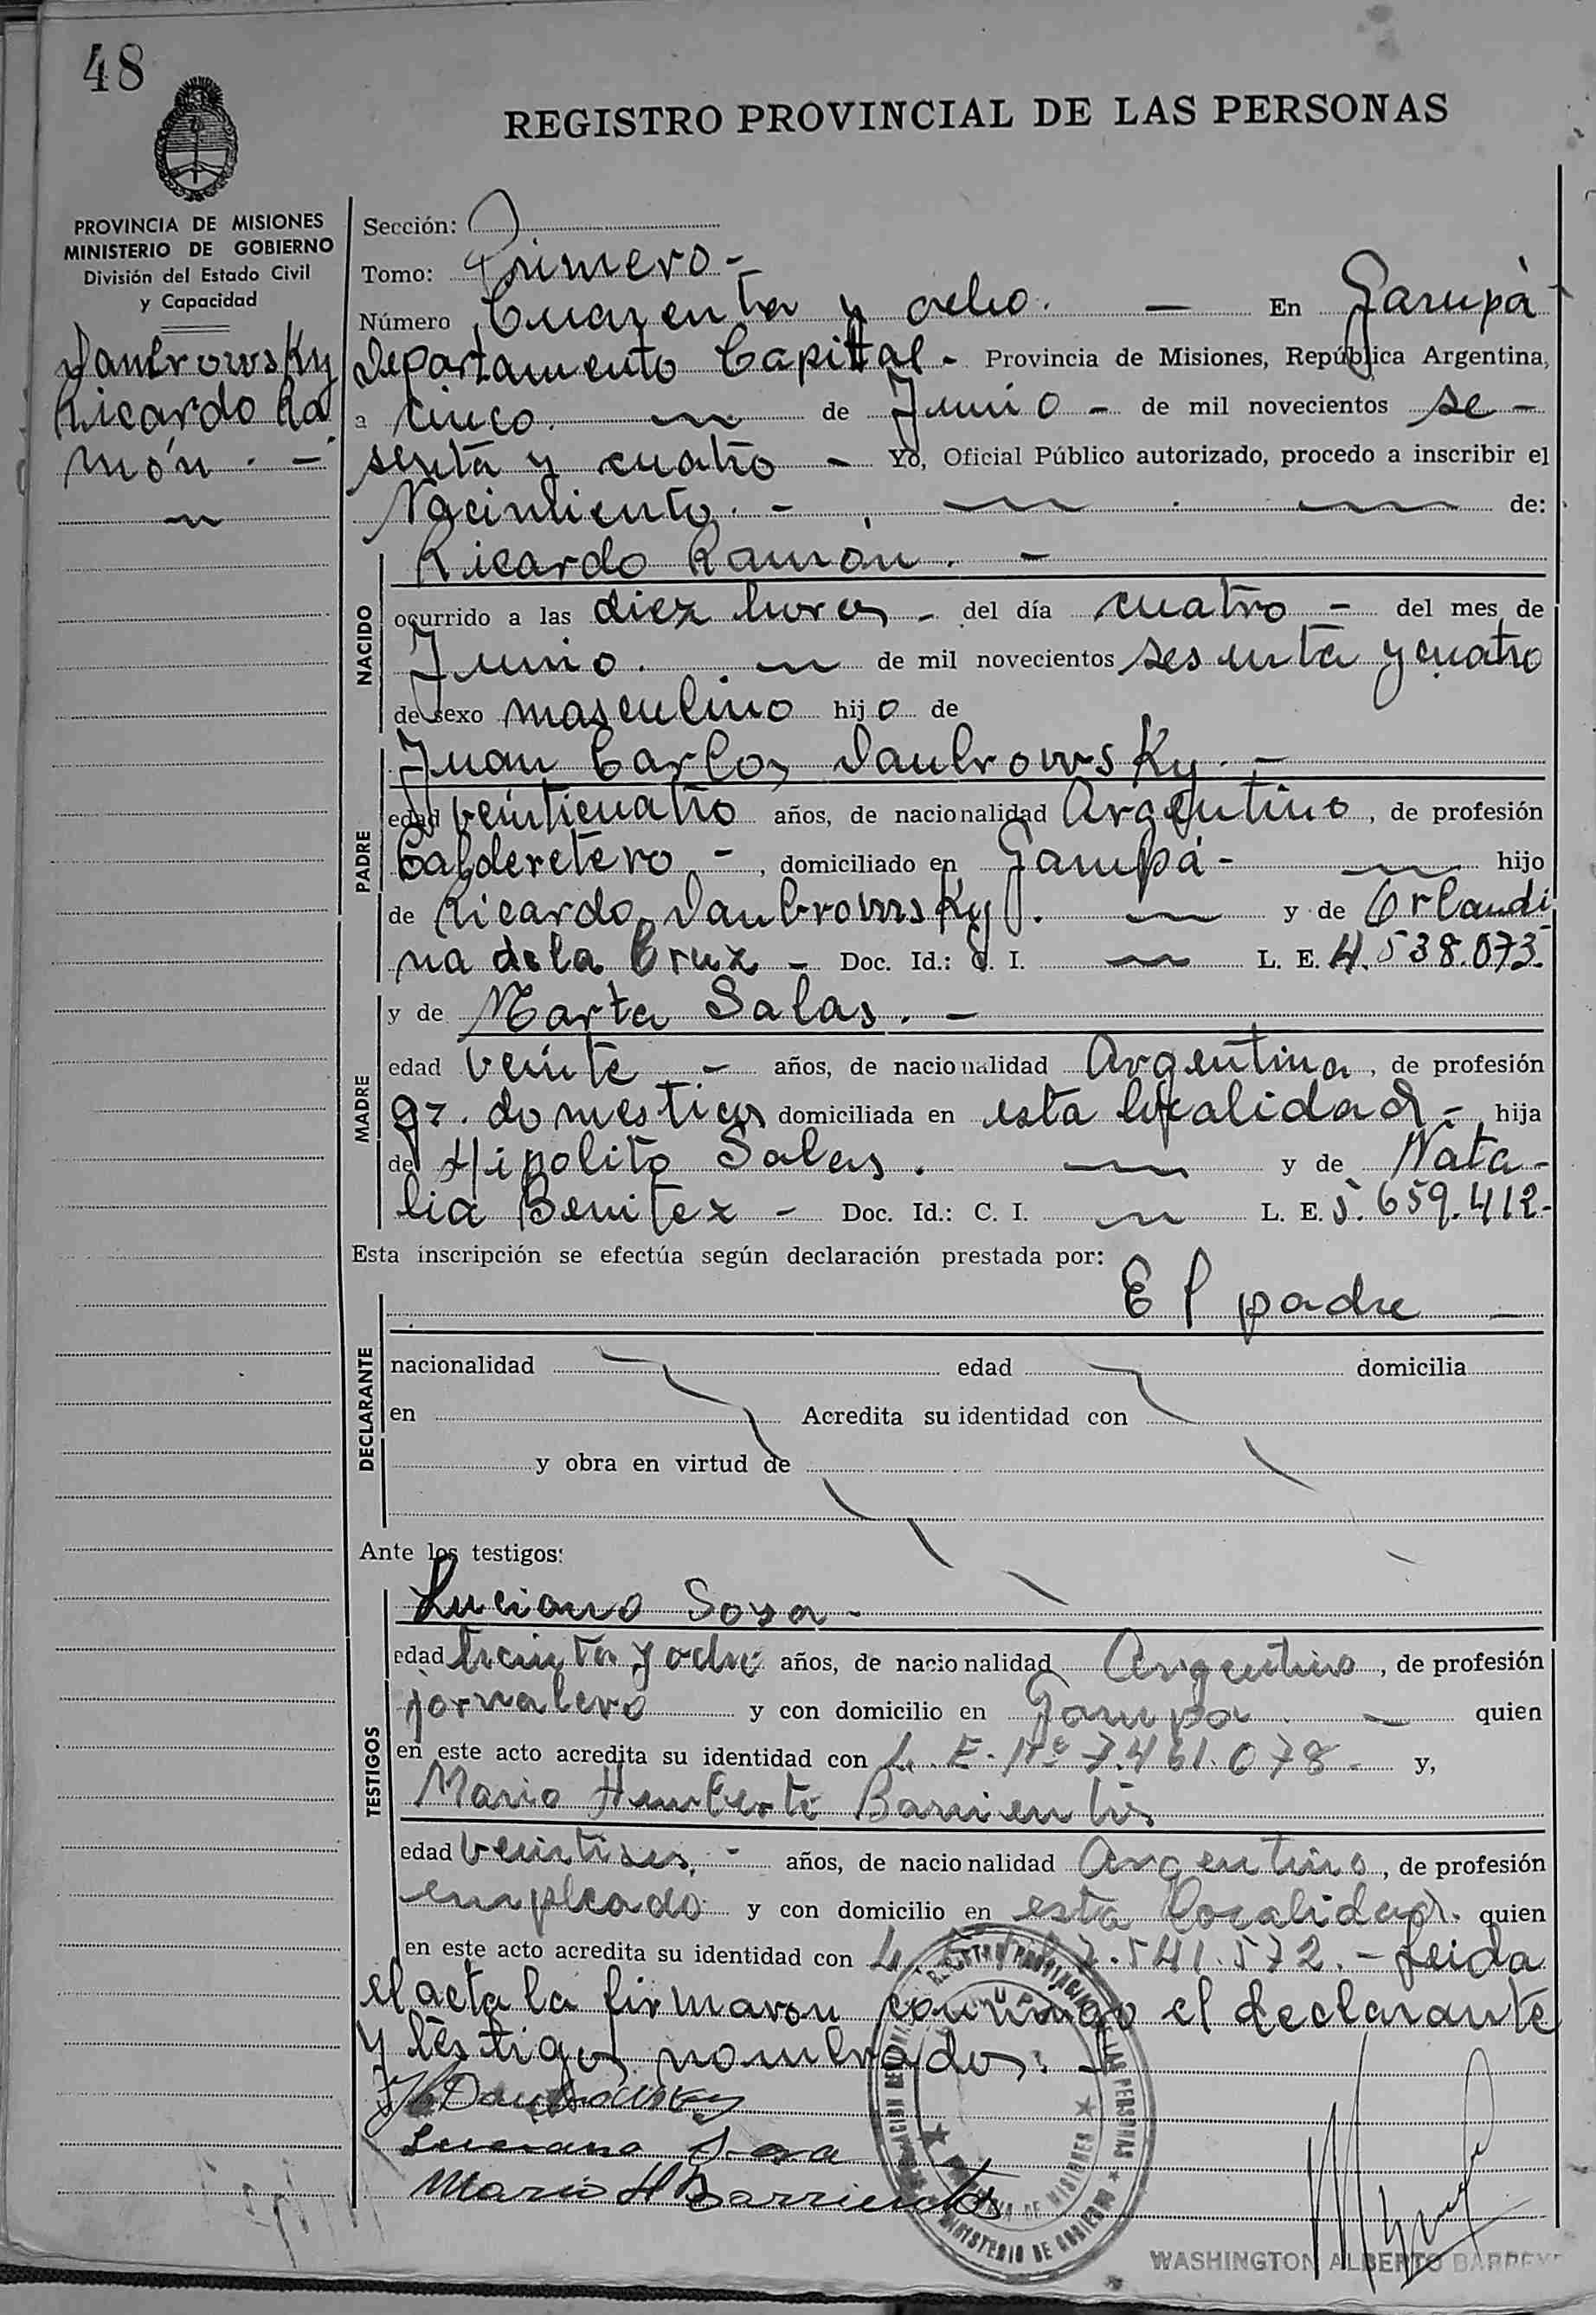 48
REGISTRO PROVINCIAL DE LAS PERSONAS
PROVINCIA DE MISIONES
MINISTERIO DE GOBIERNO
División del Estado Civil
y Capacidad
Daubrowsky
Ricardo Ra
món. -
Sección:
Tomo: Primero -
Número Cuarenta y ocho. — En Garupá
Departamento Capital - Provincia de Misiones, República Argentina,
a cinco. de Junio - de mil novecientos se -
senta y cuatro - Yo, Oficial Público autorizado, procedo a inscribir el
Nacimiento. - de:
NACIDO
Ricardo Ramón. -
ocurrido a las diez horas - del día cuatro - del mes de
Junio. de mil novecientos sesenta y cuatro
de sexo masculino hijo de
PADRE
Juan Carlos Daubrowsky. -
edad veinticuatro años, de nacionalidad Argentino, de profesión
Calderetero -, domiciliado en Garupá - hijo
de Ricardo Daubrowsky. y de Orlandi
na de la Cruz - Doc. Id.: C. I. L. E. 4.538.073.
MADRE
y de Marta Salas. -
edad veinte - años, de nacionalidad Argentina, de profesión
qz. domesticos domiciliada en esta localidad - hija
de Hipolito Salas. y de Nata-
lia Benitez - Doc. Id.: C. I. L. E. 5.659.412-
Esta inscripción se efectúa según declaración prestada por:
El padre
DECLARANTE
nacionalidad edad domicilia
en Acredita su identidad con
y obra en virtud de
Ante los testigos:
TESTIGOS
Luciano Sosa -
edad treinta y ocho años, de nacionalidad Argentino, de profesión
jornalero y con domicilio en Garupá. quien
en este acto acredita su identidad con L. E. Nº 7.461.078 - y,
Mario Humberto Barrientos
edad veintiseis. - años, de nacionalidad Argentino, de profesión
empleado y con domicilio en esta localidad. quien
en este acto acredita su identidad con L. 7.541.572. - Leida
el acta la firmaron conmigo el declarante
y testigos nombrados: -
Daubrowsky
Luciano Sosa
Mario H Barrientos
MINISTERIO DE GOBIERNO
WASHINGTON ALBERTO